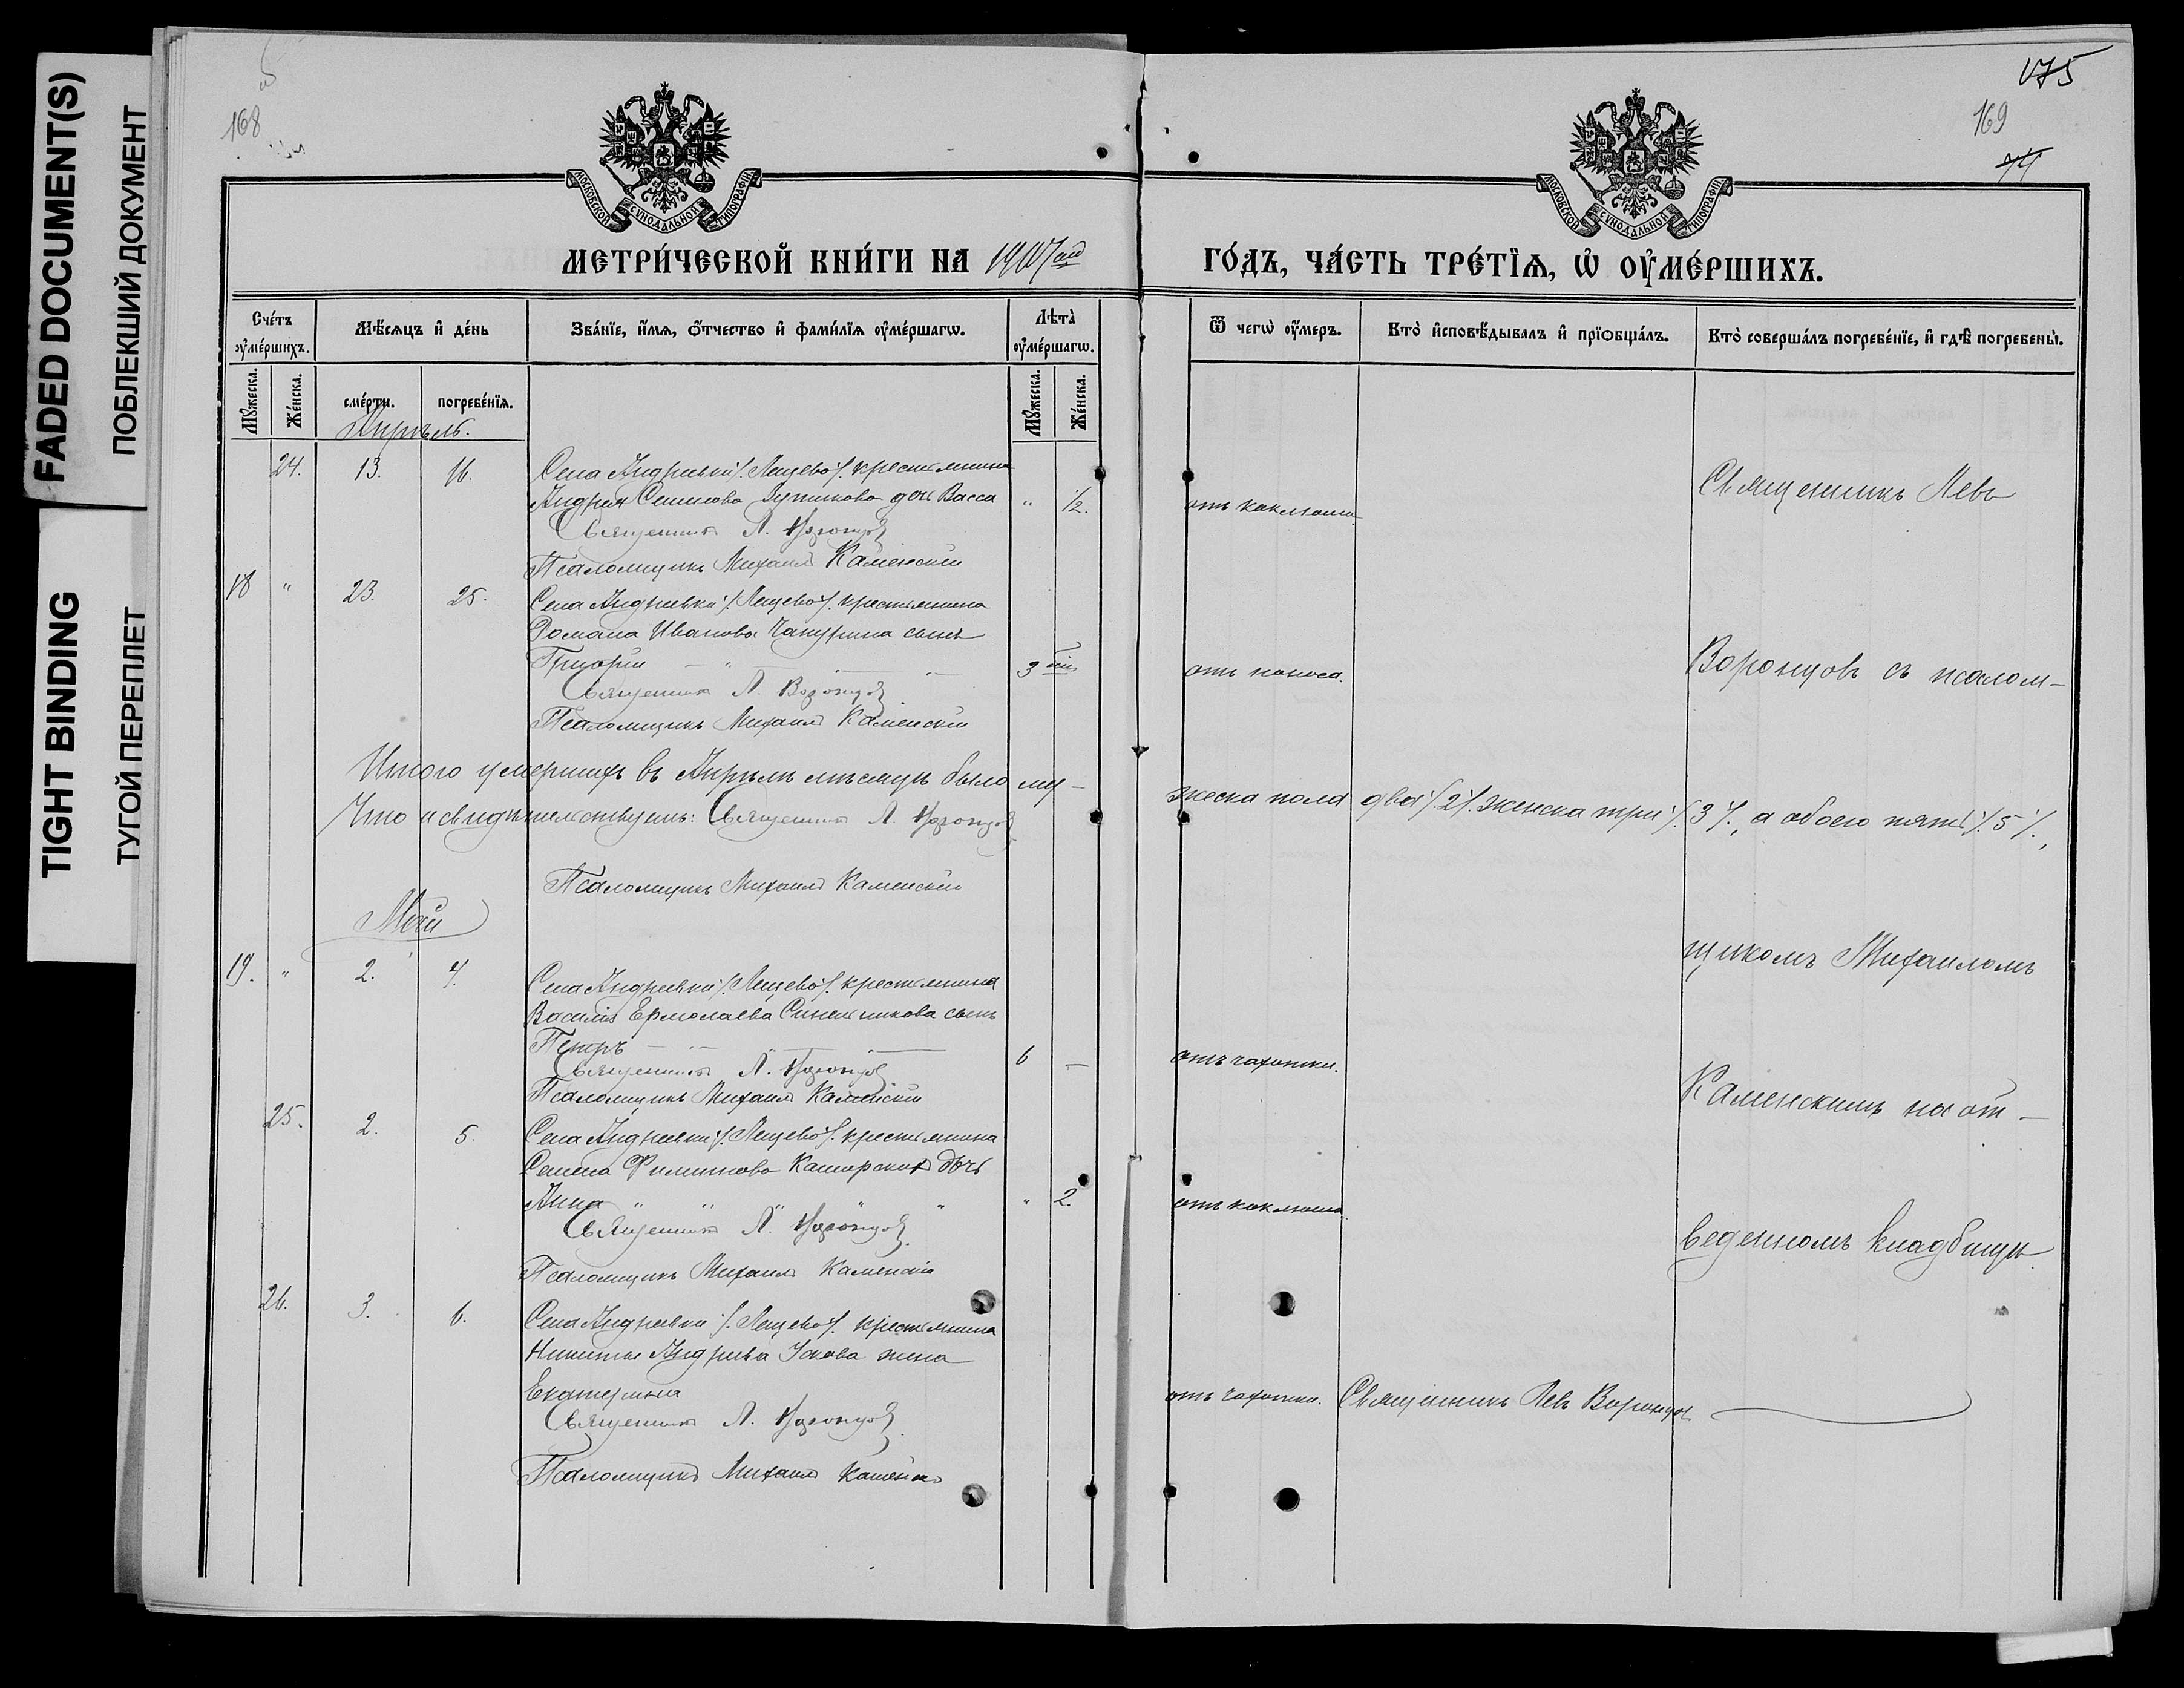 FADED DOCUMENT(S)
ПОБЛЕКШИЙ ДОКУМЕНТ
TIGHT BINDING
ТУГОЙ ПЕРЕПЛЕТ
168
МОСКОВСКОЙ СУНОДАЛЬНОЙ ТИПОГРАФІИ
МЕТРИ́ЧЕСКОЙ КНИ́ГИ НА
Сче́тъ ᲂу҆ме́ршихъ.
Мѣ́сяцъ и҆ де́нь
Зва́нїе, и҆́мя, ѻ҆́тчество и҆ фами́лїя ᲂу҆ме́ршагѡ.
Лѣ́та ᲂу҆ме́ршагѡ.
Мꙋ́жеска.
Же́нска.
сме́рти.
погребе́нїя.
Мꙋ́жеска.
Же́нска.
Апрѣль.
24. 13. 16. Села Андреевки /. Лещево /. крестьянина
Андрея Семенова дочь Васса " ½.
Священникъ Л. Воронцовъ
Псаломщикъ Михаилъ Каменскій
18 " 23. 25. Села Андреевки /. Лещево /. крестьянина
Романа Иванова Чапурина сынъ
Григорій 3
Священникъ Л. Воронцовъ
Псаломщикъ Михаилъ Каменскій
Итого умершихъ въ Апрѣлѣ мѣсяцѣ было му-
Что и свидѣтельствуемъ: Священникъ Л. Воронцовъ
Псаломщикъ Михаилъ Каменскій
Май
19. " 2. 4. Села Андреевки /. Лещево /. крестьянина
Василія Ермолаева Синельникова сынъ
Петръ 6 —
Священникъ Л. Воронцовъ
Псаломщикъ Михаилъ Каменскій
25. 2. 5. Села Андреевки /. Лещево /. крестьянина
Семена Филиппова дочь
Анна " 2.
Священникъ Л. Воронцовъ
Псаломщикъ Михаилъ Каменскій
26. 3. 6. Села Андреевки /. Лещево /. крестьянина
Никиты Андреева Ускова жена
Екатерина
Священникъ Л. Воронцовъ
Псаломщикъ Михаилъ Каменскій
175
169
74
МОСКОВСКОЙ СУНОДАЛЬНОЙ ТИПОГРАФІИ
ГО́ДЪ, ЧА́СТЬ ТРЕ́ТЇЯ, Ѡ҆ ОУ҆МЕ́РШИХЪ.
Ѿ чегѡ̀ ᲂу҆́меръ.
Кто̀ и҆сповѣ́дывалъ и҆ прїѻбща́лъ.
Кто̀ соверша́лъ погребе́нїе, и҆ гдѣ̀ погребены̀.
Священникъ Левъ
отъ коклюша.
Воронцовъ съ псалом-
отъ поноса.
жеска пола два /. 2 /. женска три /. 3 /., а обоего пять /. 5 /.,
щикомъ Михаиломъ
отъ чахотки.
Каменскимъ на от-
отъ коклюша.
веденномъ кладбищѣ.
отъ чахотки. Священникъ Левъ Воронцовъ